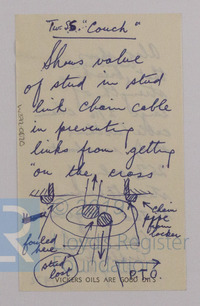 Tu SS. "Couch"
Shows value
of stud in stud
link chain cable
in preventing
links from getting
"on the cross"
chain
pipe
from
locker
fouled
here
stud
lost
PTO
VICKERS OILS ARE GOOD OILS
Lloyd's Register
Foundation